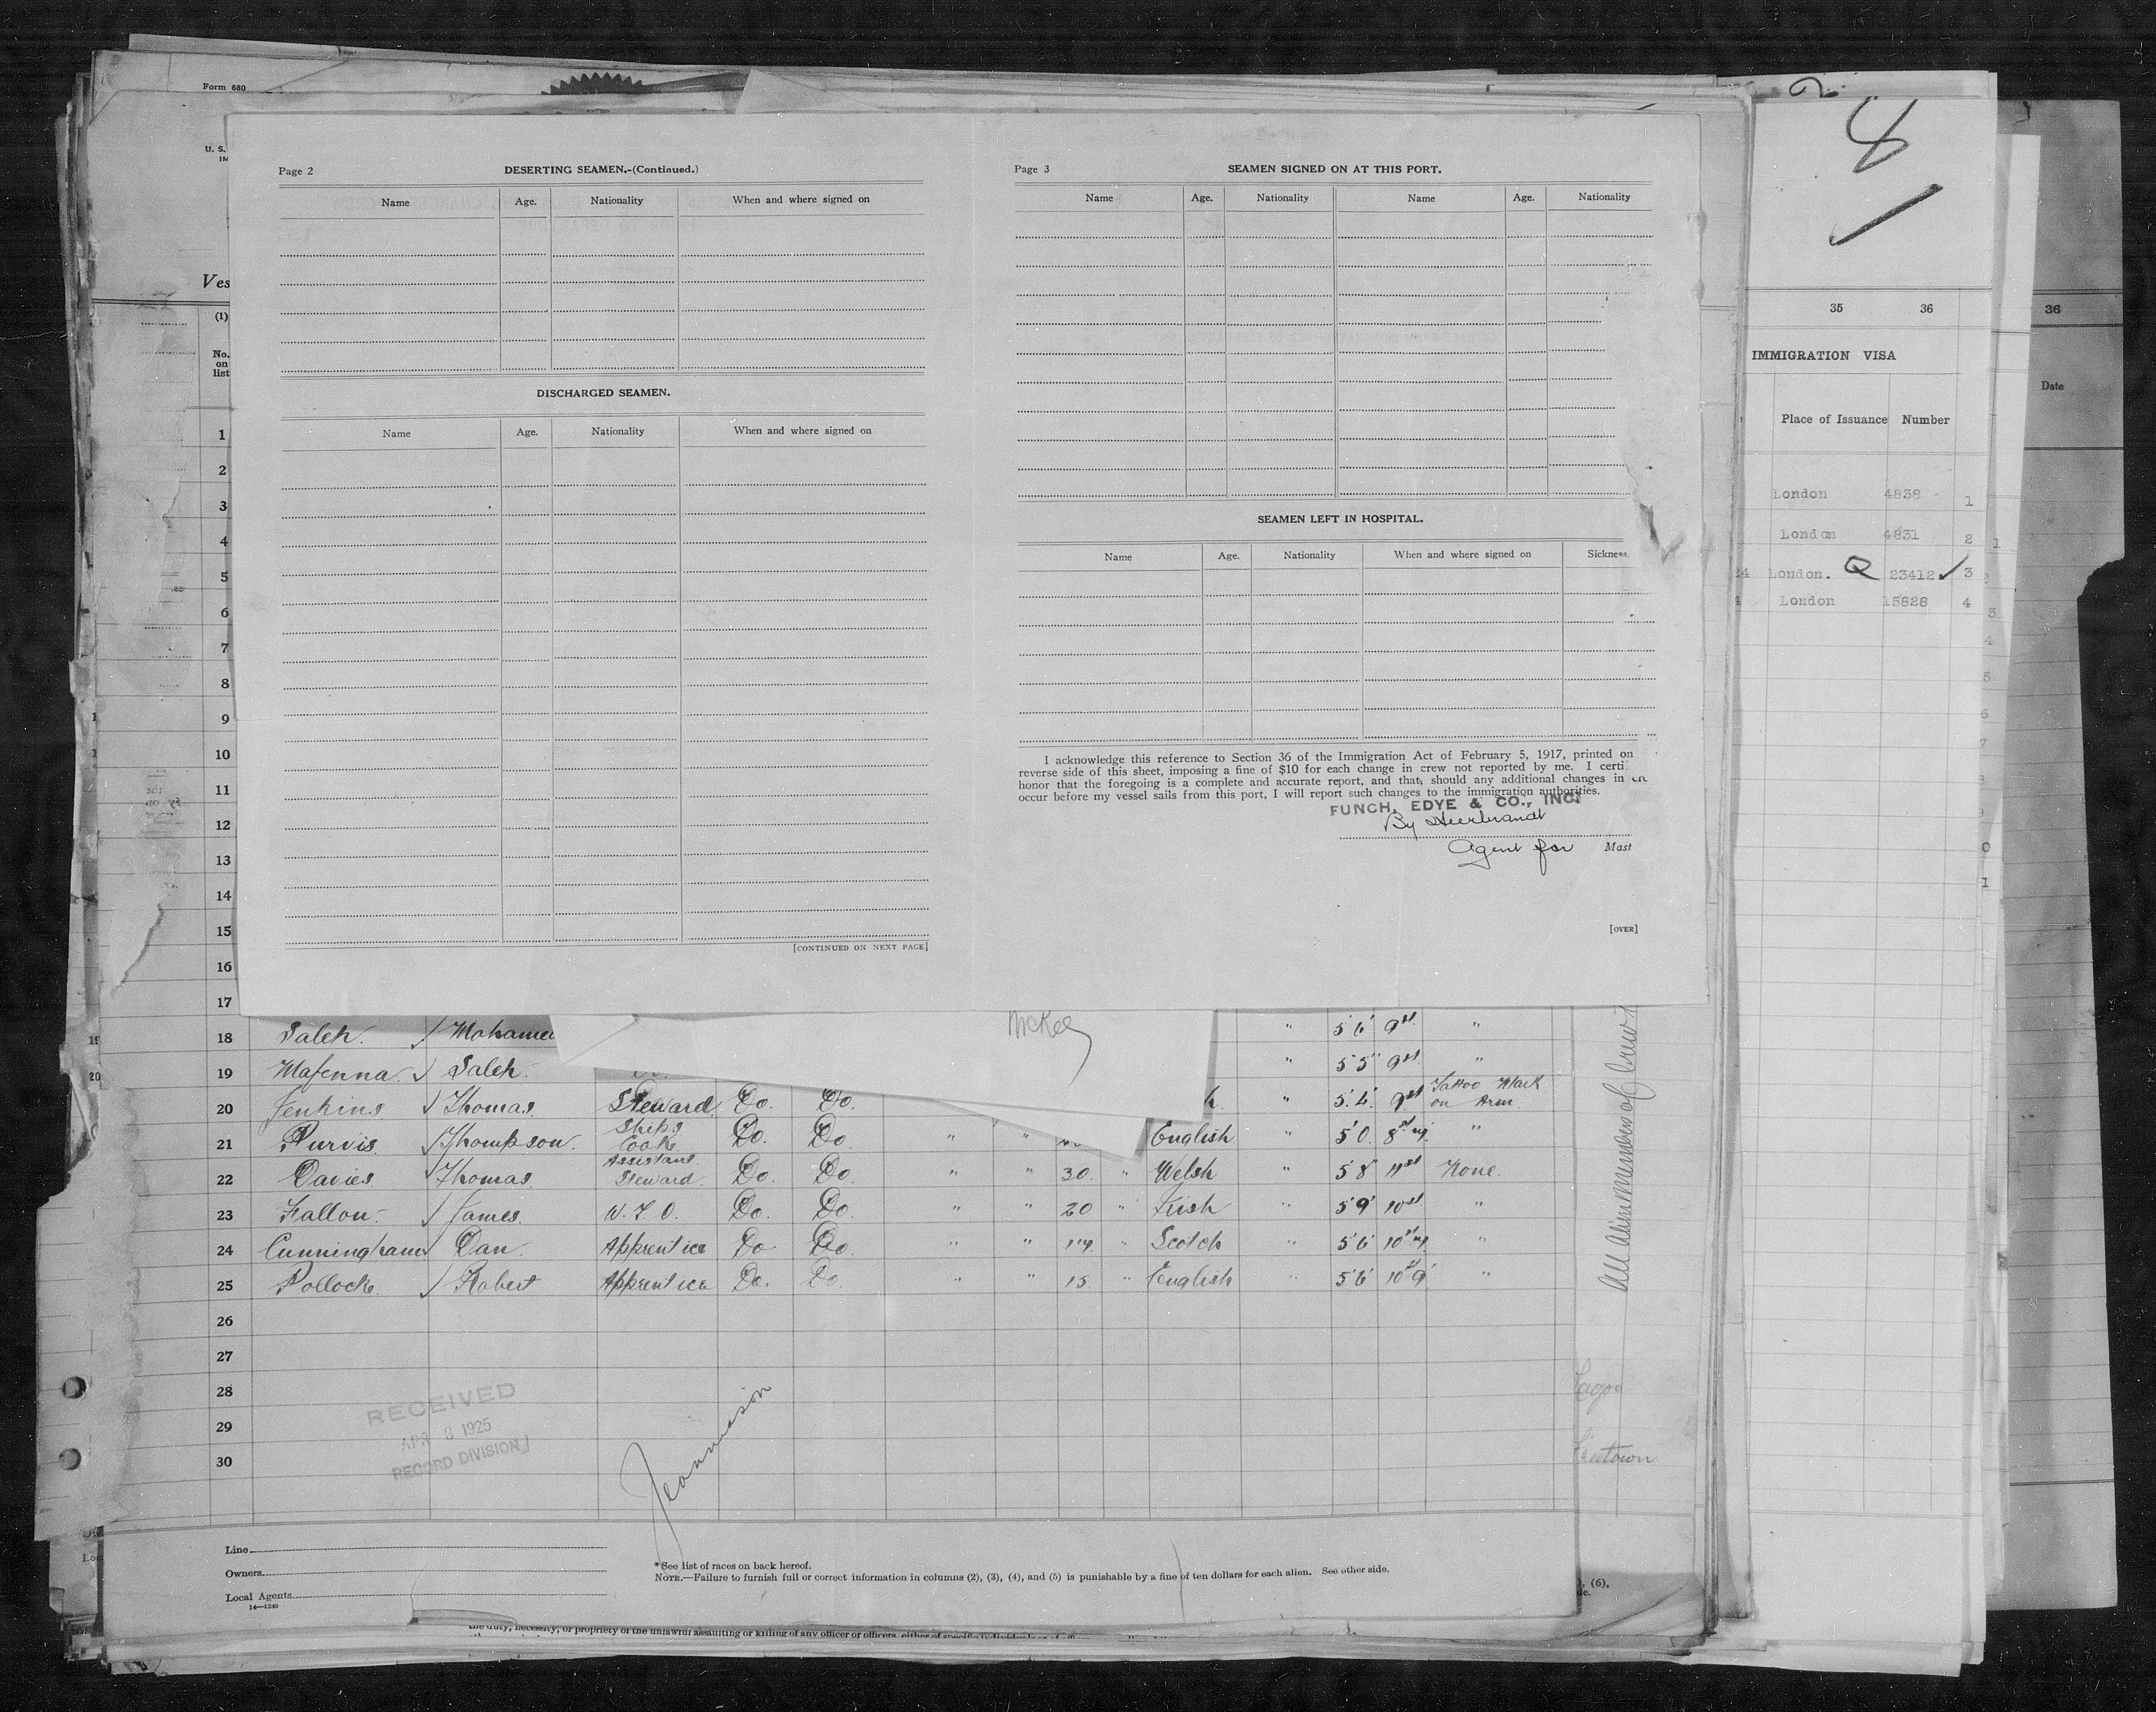 Form 680
U. S.
Ves
(1)
No.
on
list
Page 2
DESERTING SEAMEN.-(Continued.)
Name Age. Nationality When and where signed on
DISCHARGED SEAMEN.
Name Age. Nationality When and where signed on
[CONTINUED ON NEXT PAGE]
Page 3
SEAMEN SIGNED ON AT THIS PORT.
Name Age. Nationality Name Age. Nationality
SEAMEN LEFT IN HOSPITAL.
Name Age. Nationality When and where signed on Sickness
I acknowledge this reference to Section 36 of the Immigration Act of February 5, 1917, printed on
reverse side of this sheet, imposing a fine of $10 for each change in crew not reported by me. I certi
honor that the foregoing is a complete and accurate report, and that, should any additional changes in
occur before my vessel sails from this port, I will report such changes to the immigration authorities.
FUNCH, EDYE & CO., INC.
By
Agent for Mast
[OVER]
8
35 36
IMMIGRATION VISA
Place of Issuance Number
London 4838 1
London 4831 2
24 London. 23412 ✓ 3
4 London 15828 4
36
Date
1
2
3
4
5
6
7
8
9
10
11
12
13
14
15
16
17
McKee
18 Saleh. Mohame " 5'6" 9st "
19 Mafenna. Saleh. " 5'5" 9st "
20 Jenkins Thomas. Steward Do. Do. " 5'4" 9st Tattoo Mark on Arm
21 Purvis. Thompson. Ships Cook Do. Do. " " English " 5'0 "
22 Davies. Thomas. Assistant Steward. Do. Do. " " 30. " Welsh " 5'8 11st None.
23 Fallon. James. W. T. O. Do. Do. " " 20 " Irish " 5'9" 10st "
24 Cunningham Dan. Apprentice Do Do. " " 17. " Scotch " 5'6" "
25 Pollock. Robert Apprentice Do. Do. " " 15. " English " 5'6" "
26
27
28
29
30
All alien members of crew
Lagos
Freetown
RECEIVED
APR 8 1925
RECORD DIVISION
Jeannison
Line
Owners
Local Agents
14—1240
*See list of races on back hereof.
NOTE.—Failure to furnish full or correct information in columns (2), (3), (4), and (5) is punishable by a fine of ten dollars for each alien. See other side.
(6),
the duty, necessity, or propriety of the unlawful assaulting or killing of any officer or officers, either of specific individuals or of